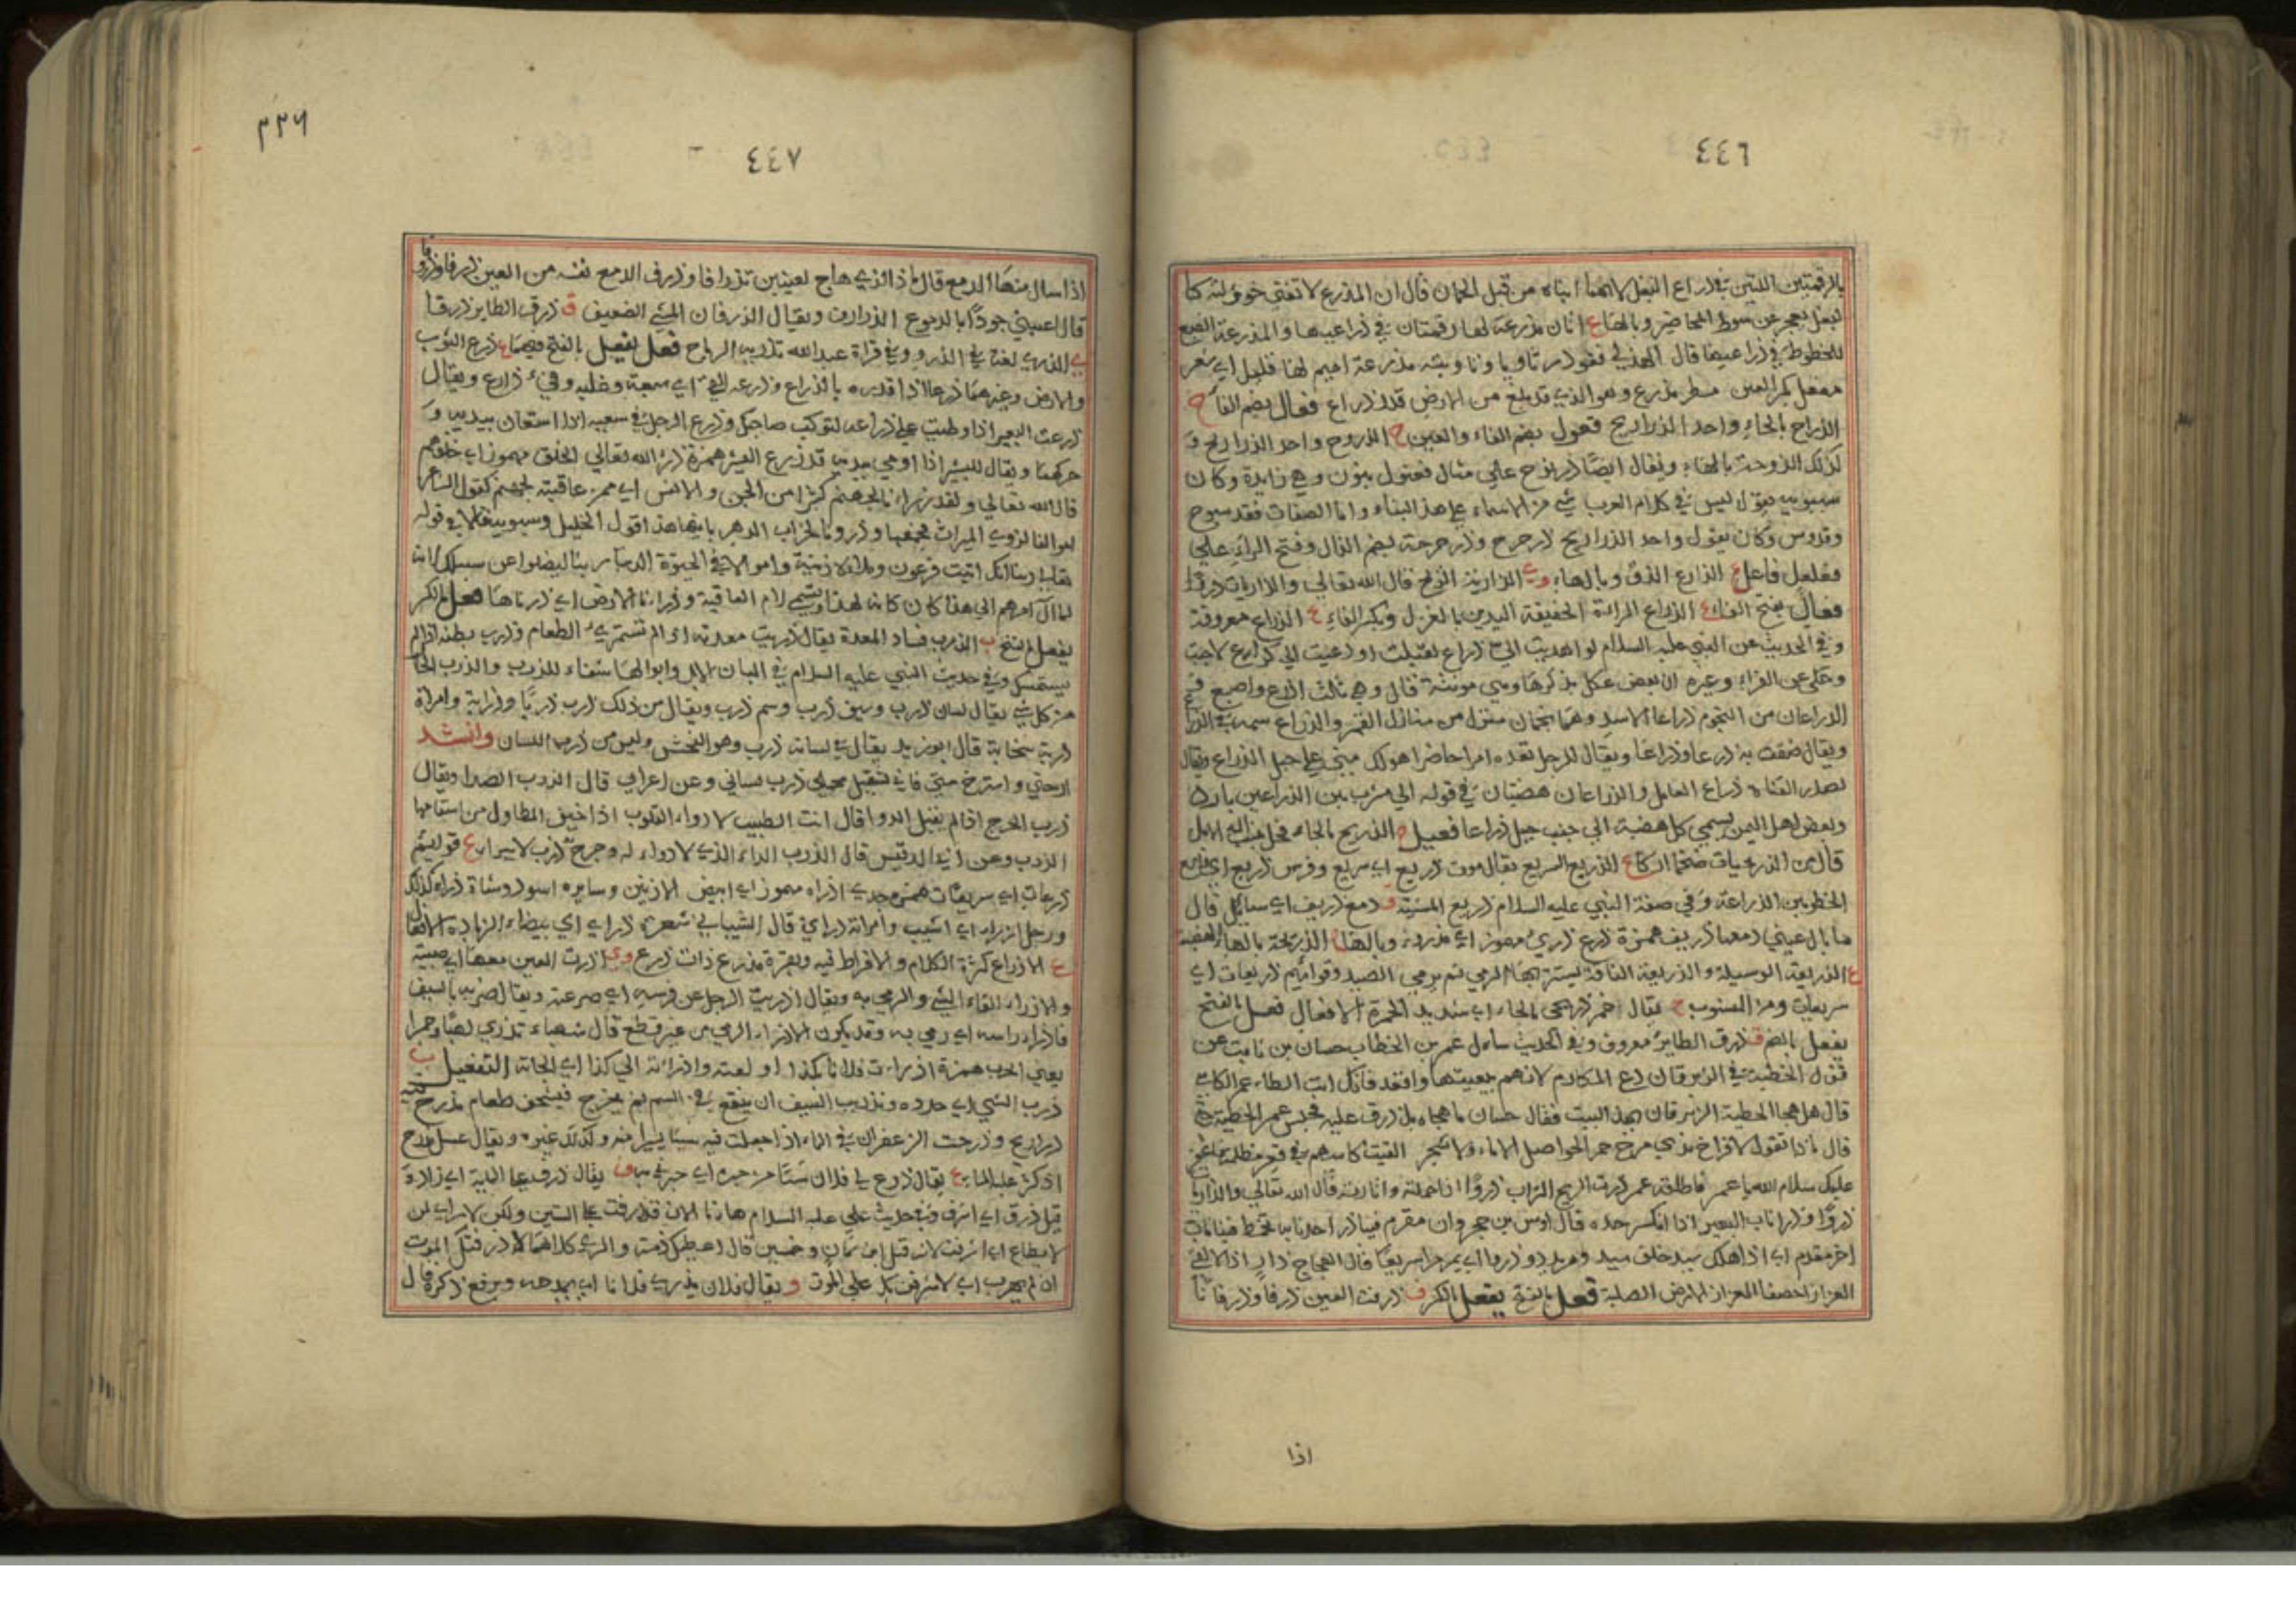 ٤٤٦
بالرقمتين اللتين في ذراع البغل لانهما اتياه من قبل الحمار قال ان المذرع لا تغنى خوولته كا
لبغل يعجز عن شوط المحاضير وبالهاء ع اتان مذرعة لها رقمتان في ذراعيها والمذرعة الضبع
للخطوط في ذراعيها قال الهذلي فغودر ثاويا وتاوبته مذرعة اميم لها فليل اي شعر
مفعل بكسر العين مطر مذرع وهو الذي قد بلغ من الارض قدر ذراع فعال بضم الفاء ح
الذراح بالحاء واحد الذراريح فعول بضم الفاء والعين ح الذروح واحد الذراريح و
كذلك الذروحة بالهاء ويقال ايضا ذرنوح على مثال فعنول بنون وهي زايدة وكان
سيبويه يقول ليس في كلام العرب شي من الاسماء على هذا البناء واما الصفات فقد سبوح
وقدوس وكان يقول واحد الذراريح ذرحرح وذرحرحة بضم الذال وفتح الراء على
فعلعل فاعل ع الذارع الذق وبالهاء وي الذارية الريح قال الله تعالى والذاريات ذروا
فعال بفتح الفاء ع الذراع المراة الخفيفة اليدين بالغزل وبكسر الفاء ع الذراع معروفة
وفي الحديث عن النبي عليه السلام لو اهديت الي ذراع لقبلت ولو دعيت الى كراع لاجبت
وحكى عن الفراء وغيره ان بعض عكل يذكرها وهي مونثة قال وهي ثلث اذرع واصبع
الذراعان من النجوم ذراعا الاسد وهما نجمان منزل من منازل القمر والذراع سمة في الذراع
ويقال ضقت به ذرعا وذراعا ويقال للرجل تعده امرا حاضرا هو لك مني على حبل الذراع ويقال
لصدر القناة ذراع العامل والذراعان هضبتان في قوله الى مشرب بين الذراعين بارد
وبعض اهل اليمن يسمي كل هضبة الى جنب جبل ذراعا فعيل ح الذريح بالحاء فحل ينسب اليه الابل
قال من الذريحيات ضخما اركا ع الذريع السريع يقال موت ذريع اي سريع وفرس ذريع اي واسع
الخطو بين الذراعة وفي صفة النبي عليه السلام ذريع المشية ف دمع ذريف اي سايل قال
ما بال عيني دمعها ذريف همزة زرع ذري مهموز اي مذروء وبالهاء الذريحة بالهاء الهضبة
ع الذريعة الوسيلة والذريعة الناقة يستتر بها الرامي ثم يرمي الصيد وقوايم ذريعات اي
سريعات ومن المنسوب ح يقال احمر ذريحي بالحاء اي شديد الحمرة الافعال فعل بالفتح
يفعل بالضم ق ذرق الطائر معروف وفي الحديث سال عمر بن الخطاب حسان بن ثابت عن
قول الحطية في الزبرقان دع المكارم لا تنهض لبغيتها واقعد فانك انت الطاعم الكاسي
قال هل هجا الحطية الزبرقان بهذا البيت فقال حسان ما هجاه بل ذرق عليه فحبس عمر الحطية
قال ماذا تقول لافراخ بذي مرخ حمر الحواصل لا ماء ولا شجر القيت كاسبهم في قعر مظلمة فاغفر
عليك سلام الله يا عمر فاطلقه عمر ذرت الريح التراب ذروا اذا حملته واثارته قال الله تعالى والذاريات
ذروا وذرا ناب البعير اذا انكسر حده قال اوس بن حجر وان مقرم منا ذرا حد نابه تخمط فينا ناب
اخر مقرم اي اذا هلك سيد خلف سيد ومر يذرو ذروا اي يمر مرا سريعا قال العجاج ذار اذا لاقى
العزاز احصفا العزاز الارض الصلبة فعل بالفتح يفعل بالكسر ف ذرفت العين ذرفا وذرفانا
اذا
٣٣٦
٤٤٧
اذا سال منها الدمع قال ماذا الذي هاج لعينين تذرافا وذرف الدمع نفسه من العين ذرفا وذروفا
قال اعيني جودا بالدموع الذوارف ويقال الذرفان المشي الضعيف ق ذرق الطاير ذرقا
ي الذري لغة في الذرو وفي قراة عبد الله تذريه الرياح فعل يفعل بالفتح فيهما ع ذرع الثوب
والارض وغيرهما ذرعا اذا قدره بالذراع وذرعه القيء اي سبقه وغلبه وقيء ذارع ويقال
ذرعت البعير اذا وطيت على ذراعه لتركب صاحبك وذرع الرجل في سعيه اذا استعان بيديه و
حركهما ويقال للبشير اذا اومى بيديه قد ذرع البشير همزة ذرأ الله تعالى الخلق مهموز اي خلقهم
قال الله تعالى ولقد ذرانا لجهنم كثيرا من الجن والانس اي ممر عاقبته لجهنم كقول الشاعر
اموالنا لذوي الميراث نجمعها ودورنا لخراب الدهر نبنيها هذا قول الخليل وسيبويه وقالا في قوله
تعالى ربنا انك اتيت فرعون وملاه زينة واموالا في الحيوة الدنيا ربنا ليضلوا عن سبيلك انه
لما آل امرهم الى هذا كان كانه لهذا ويسمى لام العاقبة وذرانا الارض اي بذرناها فعل بالكسر
يفعل بالفتح ب الذرب فساد المعدة يقال ذربت معدته اذا لم تستمري الطعام وذرب بطنه اذا لم
يستمسك وفي حديث النبي عليه السلام في البان الابل وابوالها شفاء للذرب والذرب الحاد
من كل شي يقال لسان ذرب وسيف ذرب وسم ذرب ويقال من ذلك ذرب ذربا وذرابة وامراة
ذربة صخابة قال ابو زيد يقال في لسانه ذرب وهو الفحش وليس من ذرب اللسان وانشد
ارحني واسترح مني فاني ثقيل محملي ذرب لساني وعن اعرابي قال الذرب الصدا ويقال
ذرب الجرح اذا لم يقبل الدوا قال انت الطبيب لادواء القلوب اذا خيف المطاول من اسقامها
الذرب وعن ابي الدقيش قال الذرب الداء الذي لا دواء له وجرح ذرب لا يبرا ع قوايم
ذرعات اي سريعات همزة جدي اذرا مهموز اي ابيض الاذنين وسايره اسود وشاة ذراء كذلك
ورجل اذراء اي اشيب وامراة ذراي قال
ع الاذراع كثرة الكلام والافراط فيه وبقرة مذرع ذات ذرع وي اذرت العين دمعها اي صبته
والاذراء القاء الشي والرمي به ويقال اذريت الرجل عن فرسه اي صرعته ويقال ضربه بالسيف
فاذرا راسه اي رمى به وقد يكون الاذراء الرمي من غير قطع قال شهباء تذري لهبا وجمرا
يعني الحرب همزة اذرات فلانا بكذا اولعته واذراته الى كذا اي الجاته التفعيل ب
ذرب الشي اي حدده وتذريب السيف ان ينقع في السم ثم يخرج فيشحذ ح طعام مذرح فيه
ذراريح وذرحت الزعفران في الماء اذا جعلت فيه شيا يسيرا منه وكذلك غيره ويقال عسل مذرح
اذا كثر عليه الماء ع يقال ذرع لي فلان شيا من خبره اي خبرني به ف يقال ذرف على الماية اي زاد
قيل ذرف اي اشرف وفي حديث علي عليه السلام ها انا الان قد ذرفت على الستين ولكن لا راي لمن
لا يطاع اي اشرفت لانه قتل ابن ثمان وخمسين قال
ان لم يهرب اي لاشرفن بك على الموت و يقال فلان يذري فلانا اي يمدحه ويرفع ذكره قال